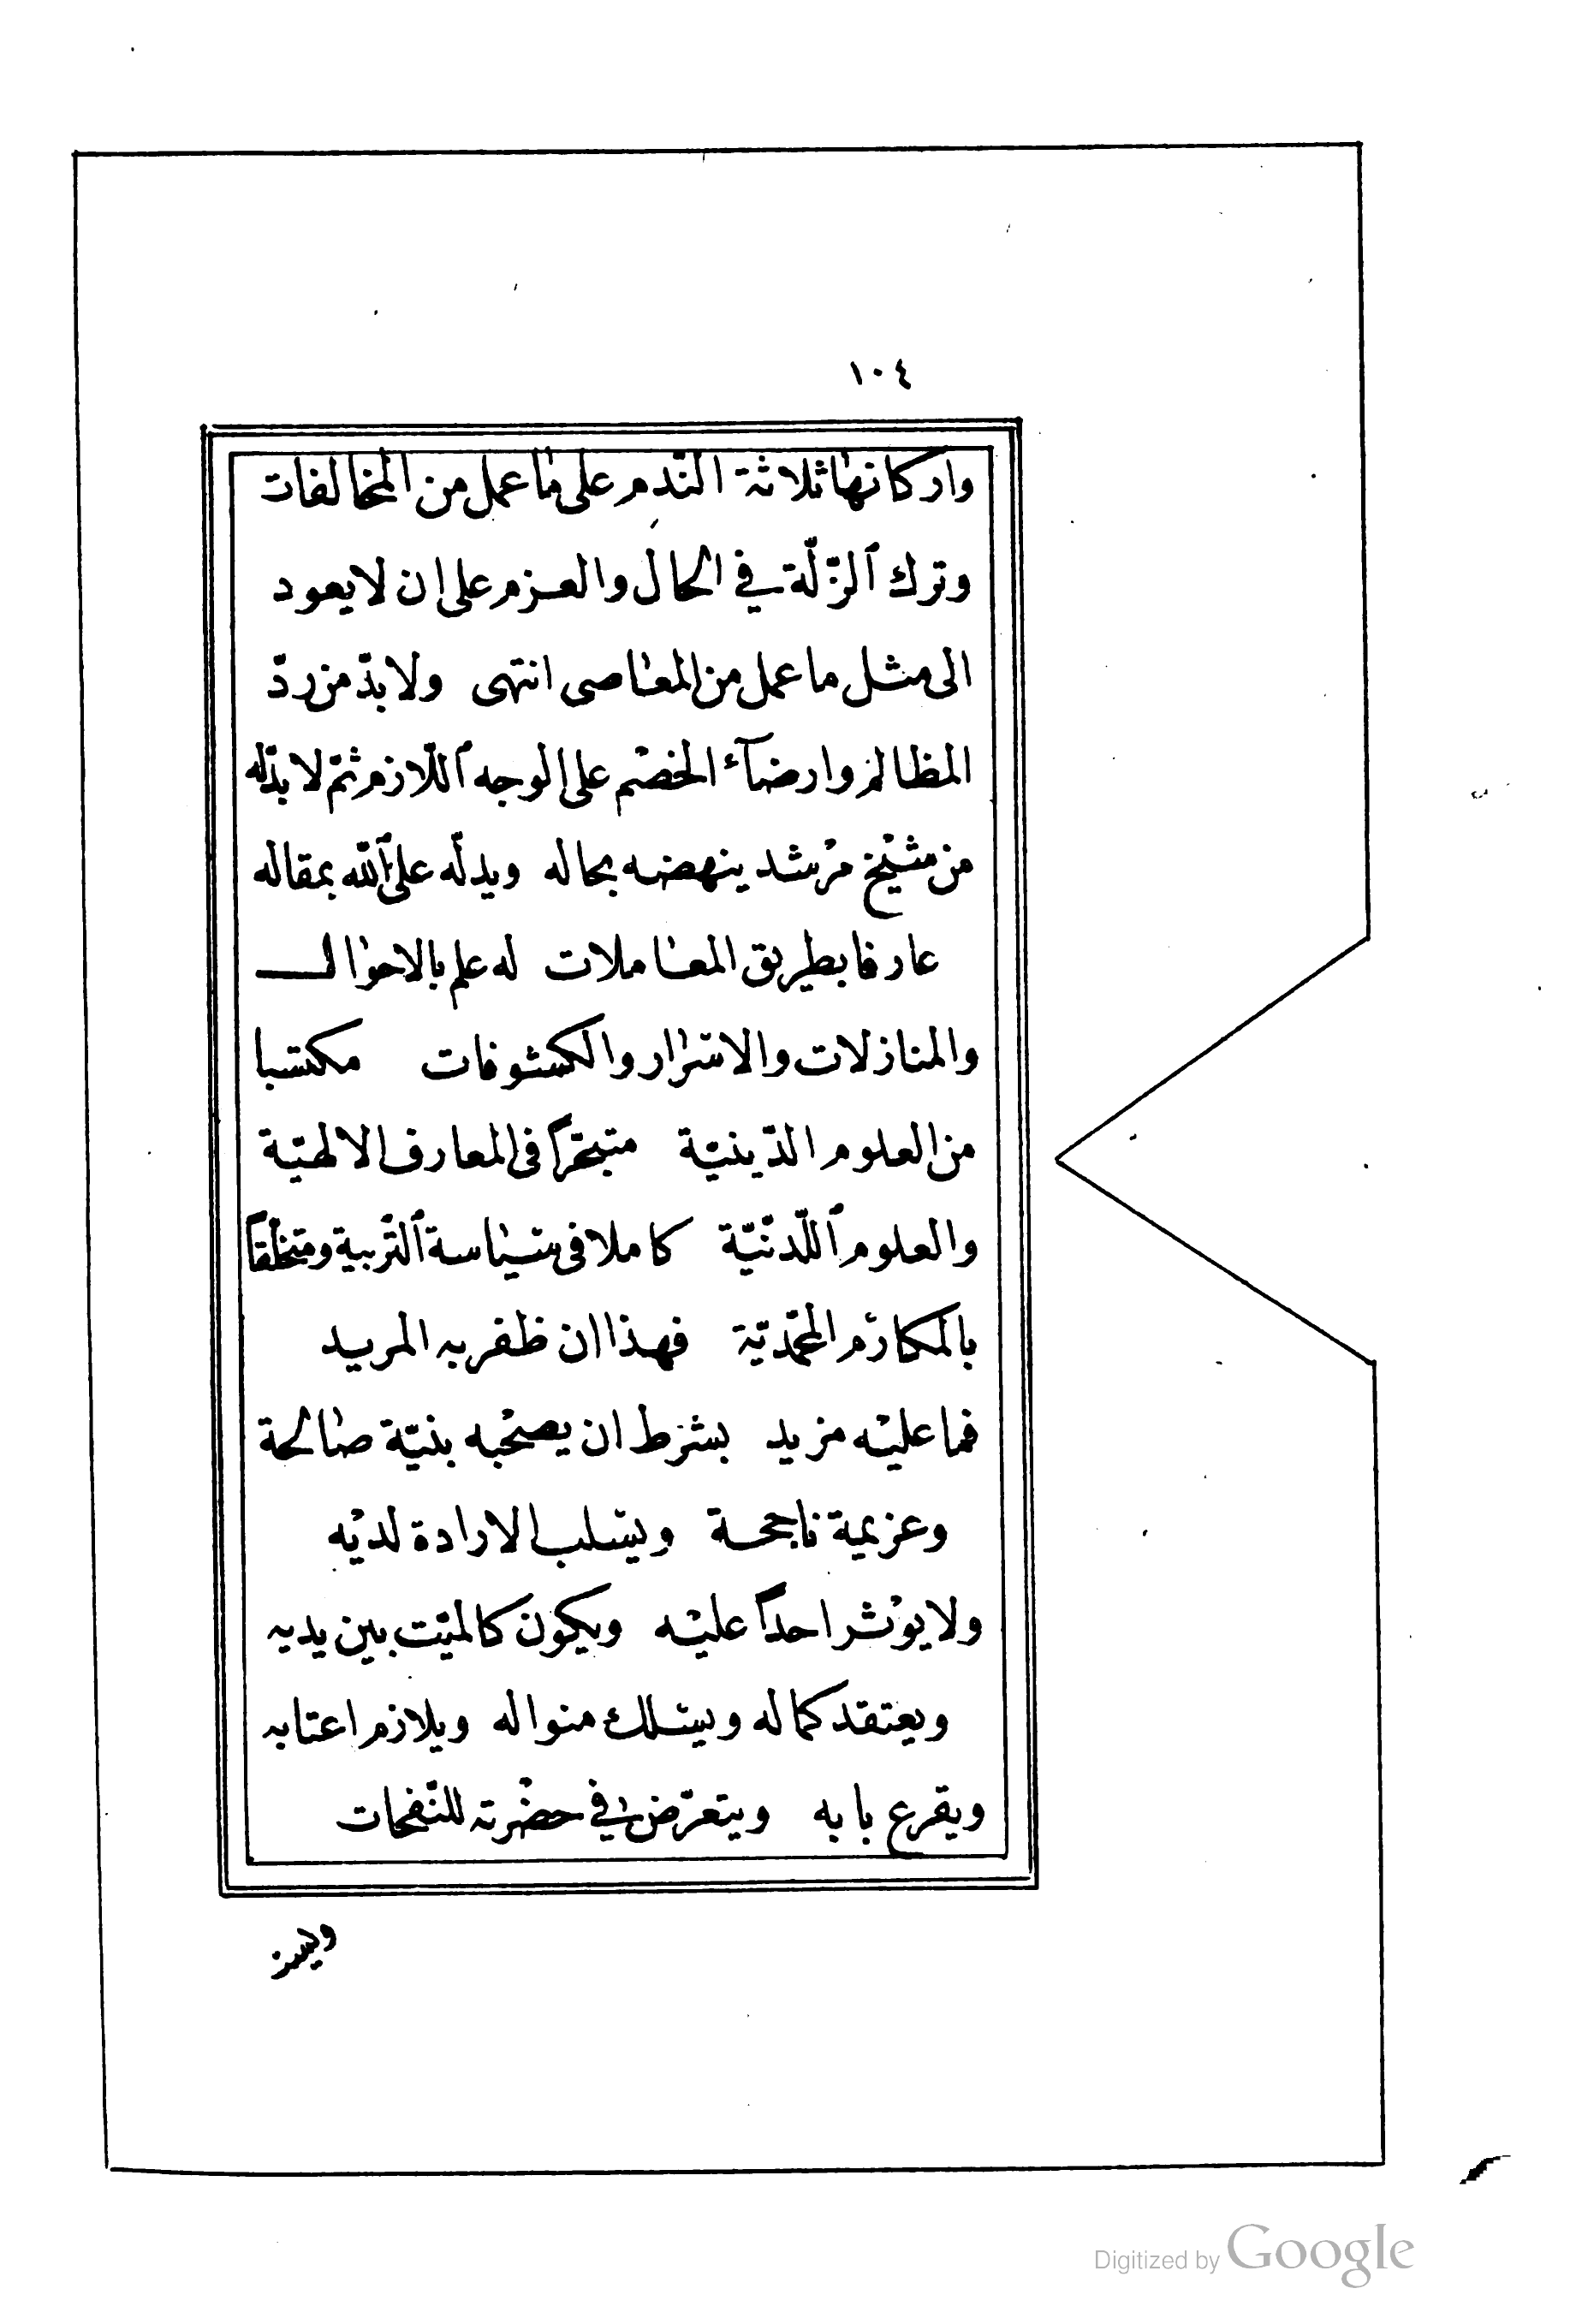 ١٠٤
واركانها ثلاثة الندم على ما عمل من المخالفات
وترك الزّلّة في الحال والعزم على ان لا يعود
الى مثل ما عمل من المعاصى انتهى ولا بدّ من ردّ
المظالم وارضآء الخصم على الوجه اللّازم ثمّ لا بدّ له
من شيخ مرشد ينهضه بحاله ويدلّه على الله بمقاله
عارفا بطريق المعاملات له علم بالاحوال
والمنازلات والاسرار والكشوفات مكتسبا
من العلوم الدّينيّة متبحّراً فى المعارف الالهيّة
والعلوم اللّدنّيّة كاملا فى سياسة التّربية ومتخلّقاً
بالمكارم المحمّديّة فهذا ان ظفر به المريد
فما عليه مزيد بشرط ان يصحبه بنيّة صالحة
وعزيمة ناجحة ويسلب الارادة لديه
ولا يؤثر احداً عليه ويكون كالميّت بين يديه
ويعتقد كماله ويسلك منواله ويلازم اعتابه
ويقرع بابه ويتعرّض في حضرته للنّفحات
Digitized by Google